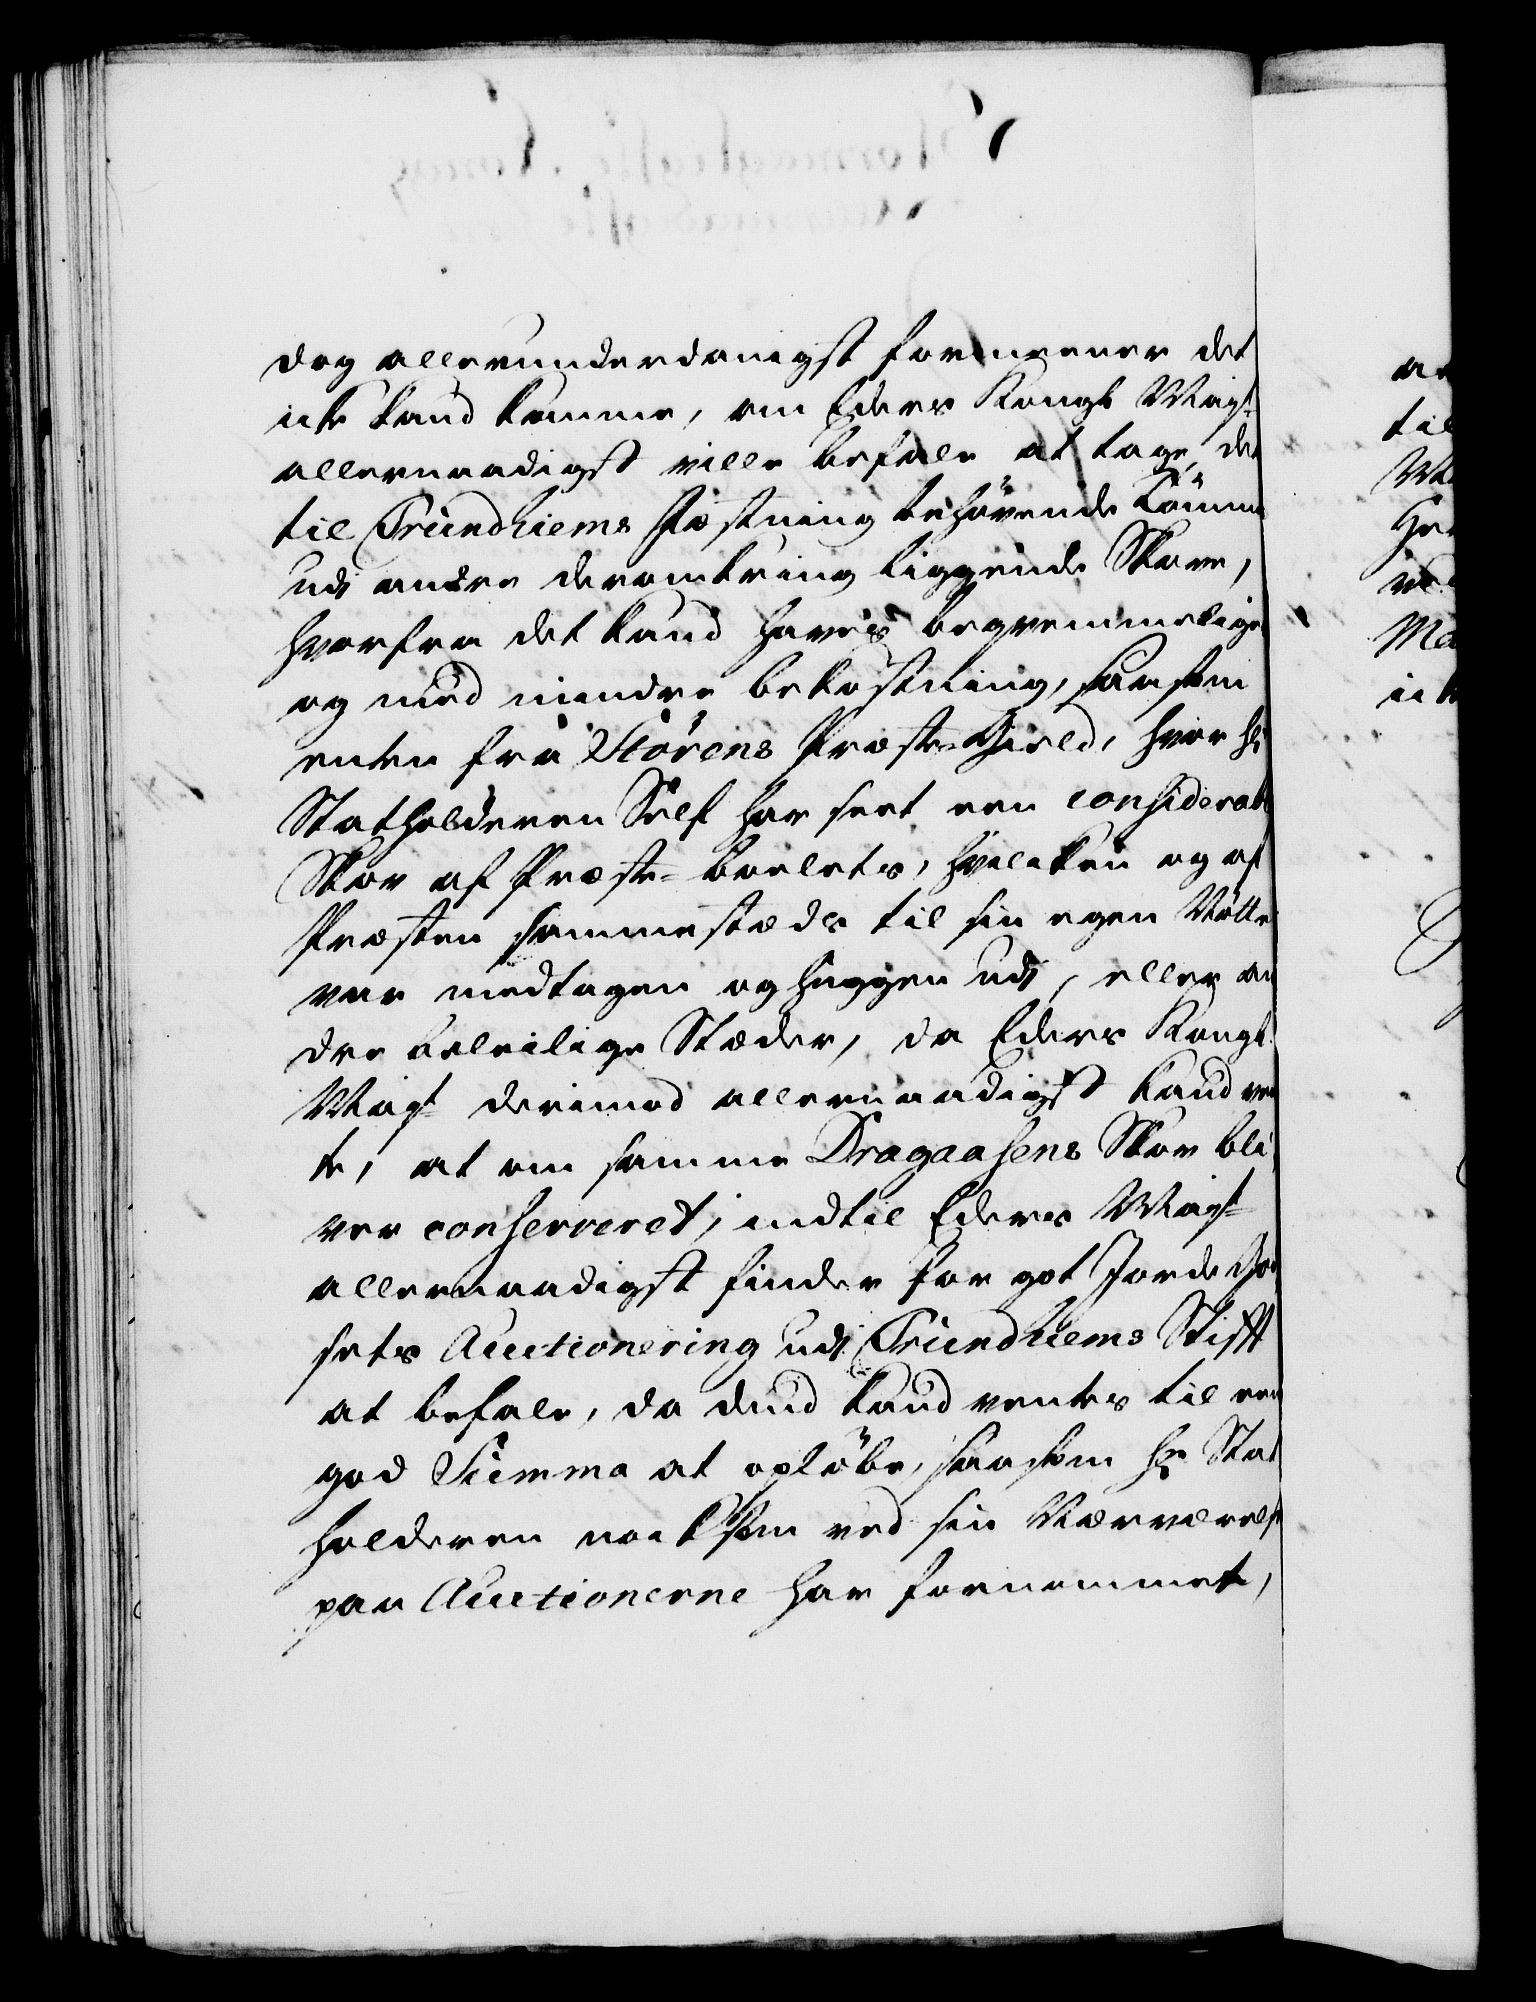 dog allerunderdanigst formeener det
icke kand komme, om Eders Kongl Mayst
allernaadigst ville befale at tage det
til Trundhiems Fæstning behövende Tömmer
udi andre deromkring liggende Skove,
hvorfra det kand haves beqvemmelige
og med mindre bekostning, saasom
enten fra Störens Præste-Gield, hvor Hr
Statholderen Self har seet een considerabl
Skov af Præste-boelets, hvilcken og af
Præsten sammestæds til sin egen Nötte
var medtagen og huggen udi, eller an
dre beleilige Stæder, da Eders Kongl
Mayst derimod allernaadigst kand ven
te, at om samme Dragaasens Skov bli
ver conserveret, indtil Eders Mayst
allernaadigst finder for got Jorde God
sets Auctionering udi Trundhiems Stifft
at befale, da dend kand ventes til een
god Summa at oplöbe, saasom Hr Stat
holderen nocksom ved sin Nærværelse
paa Auctionerne har fornemmet,